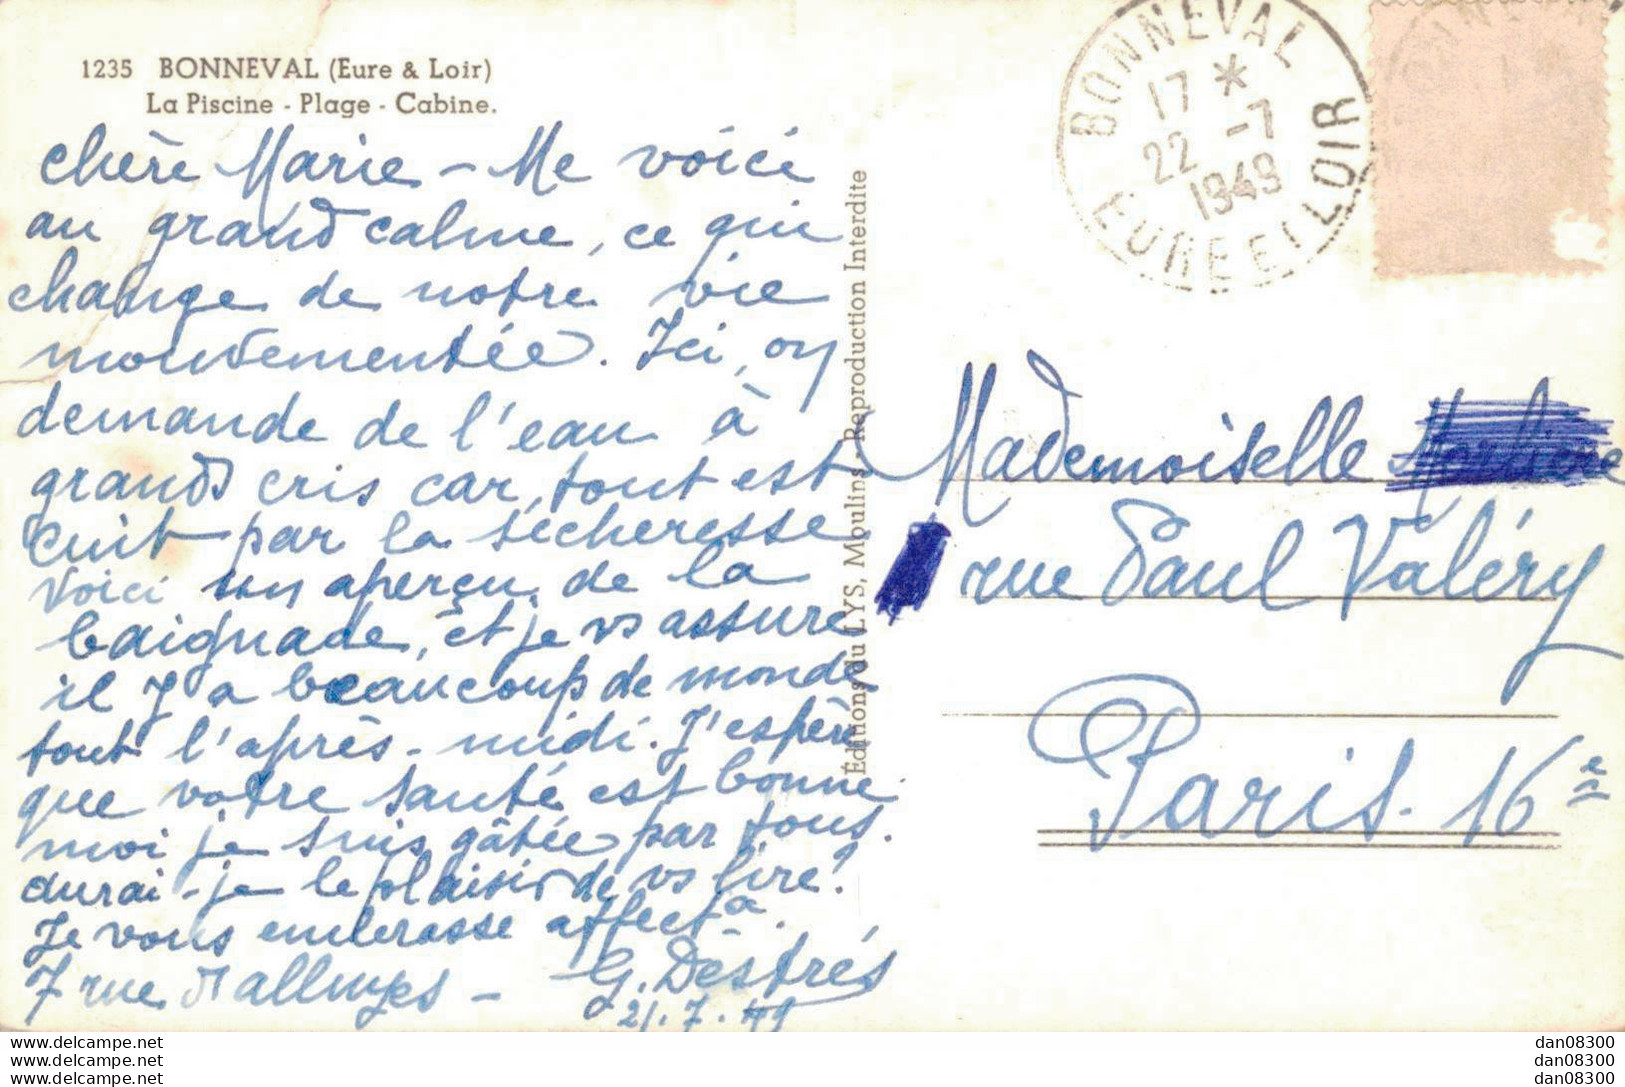 1235 BONNEVAL (Eure & Loir)
La Piscine - Plage - Cabine.
chère Marie - Me voici
au grand calme, ce qui
change de notre vie
mouvementée. Ici, on
demande de l'eau à
grands cris car, tout est
cuit par la sécheresse
Voici un aperçu de la
baignade, et je vs assure
il y a beaucoup de monde
tout l'après-midi. J'espère
que votre santé est bonne
moi je suis gâtée par tous.
aurai-je le plaisir de vs lire?
Je vous embrasse affect.
7 rue d'alluyes - G. Dèstrés
21.7.49
Éditions du LYS, Moulins Reproduction Interdite
BONNEVAL
17 *
22 -7
1949
EURE ET LOIR
Mademoiselle
rue Paul Valéry
Paris. 16e
dan08300
dan08300
dan08300
dan08300
dan08300
dan08300